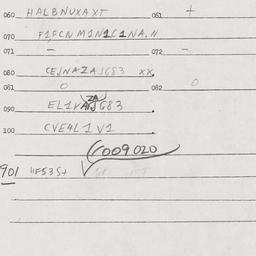 060 HALBNUXAXT 061 +
070 F1FCNM1N1C1NA.N
071 - 072 -
080 CEJNAZAJG83 XX
081 0 082 0
ZA
090 EL1VAJG83
100 CVE4L1V1
009020
901 HF53S+